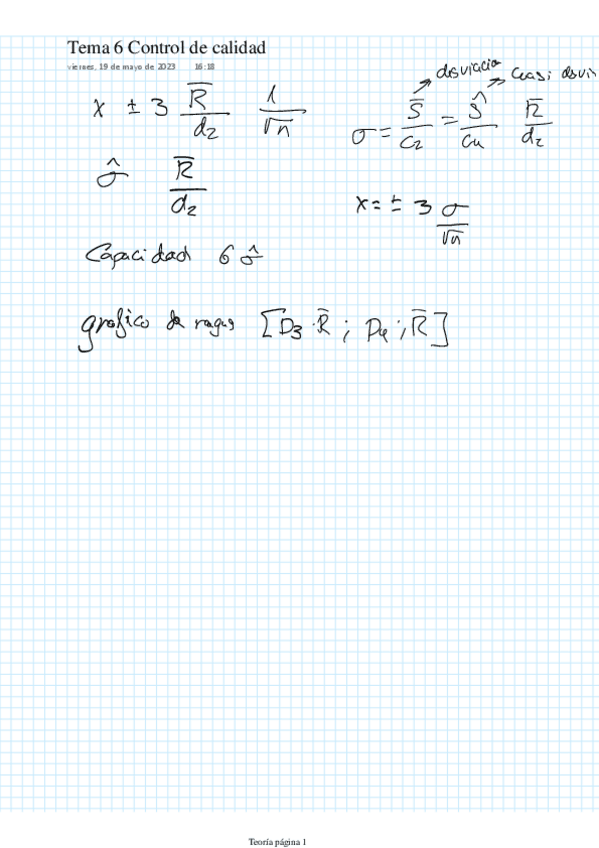 Tema 6 Control de calidad
viernes, 19 de mayo de 2023 16:18
x ± 3 R̄/d₂ 1/√n
desviación
Cuasi desvi
σ = S̄/C₂ = Ŝ/C₄ R̄/d₂
σ̂ R̄/d₂
x = ± 3 σ/√n
Capacidad 6 σ̂
grafico de ragos [D₃·R̄ ; D₄ ; R̄]
Teoría página 1